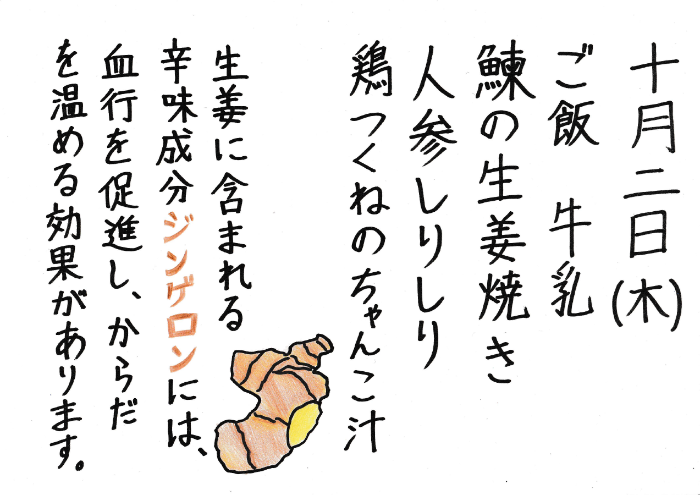 十月二日(木)
ご飯 牛乳
鰊の生姜焼き
人参しりしり
鶏つくねのちゃんこ汁
生姜に含まれる
辛味成分ジンゲロンには、
血行を促進し、からだ
を温める効果があります。